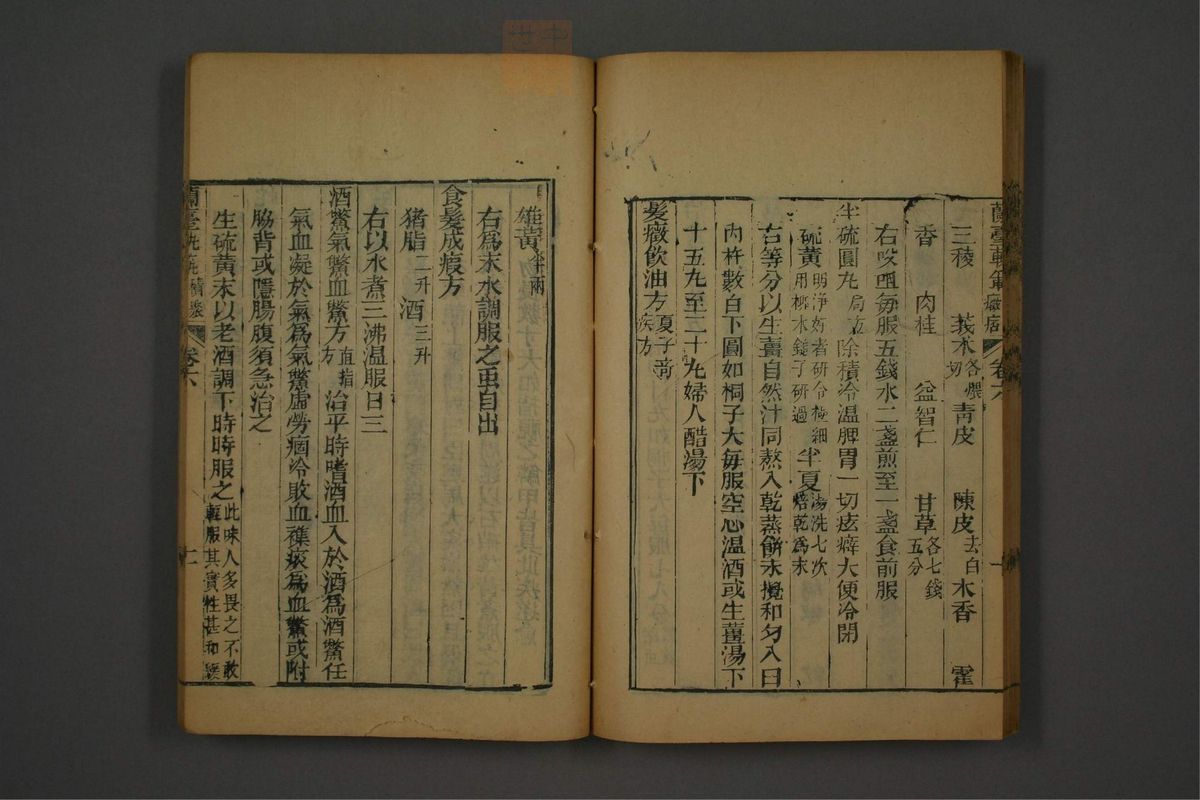 蘭臺軌範 癥瘕 卷六
三稜 莪朮各煨切 青皮 陳皮去白 木香 霍
香 肉桂 益智仁 甘草各七錢五分
右㕮咀每服五錢水二盞煎至一盞食前服
半硫圓九 局方 除積冷温脾胃一切痃癖大便冷閉
硫黃明淨好者研令極細用柳木錘子研過 半夏湯洗七次焙乾爲末
右等分以生薑自然汁同熬入乾蒸餅末攪和勻入臼
內杵數百下圓如桐子大每服空心温酒或生薑湯下
十五九至二十九婦人醋湯下
髮癥飲油方夏子益疾方
雄黃半兩
右爲末水調服之虫自出
食髮成瘕方
猪脂二升 酒三升
右以水煮三沸温服日三
酒鱉氣鱉血鱉方直指方 治平時嗜酒血入於酒爲酒鱉任
氣血凝於氣爲氣鱉虛勞痼冷敗血襍痰爲血鱉或附
脇背或隱腸腹須急治之
生硫黃末以老酒調下時時服之此味人多畏之不敢輕服其實性甚和緩
卷六